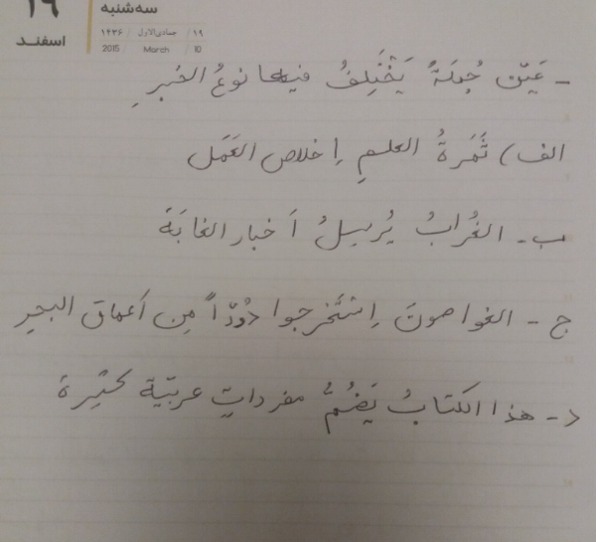 ١٩
سه‌شنبه
اسفند
١٩ / جمادی‌الاول / ١٤٣٦
10 / March / 2015
- عَيّن جُملَةً يَختَلِفُ فيها نوعُ الخبرِ
الف) ثَمَرةُ العلمِ إخلاص العَمَل
ب- الغُرابُ يُرسِلُ أَخبار الغابَةَ
ج - الغواصونَ اِستَخرجوا دُرّاً مِن أعماق البحرِ
د- هذا الكتابُ يَضُمُّ مفرداتٍ عربيّة كثيرة